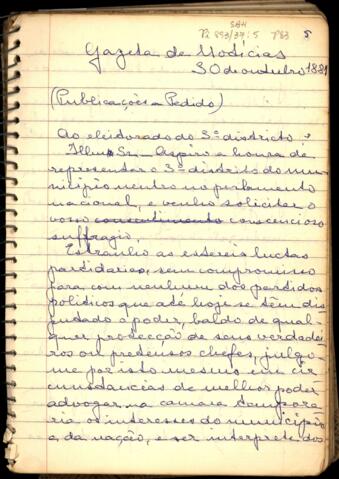 SBH
P2 893/37:5 P83 5
Gazeta de Noticias
30 de outubro 1881
(Publicações a Pedido)
Ao eleitorado do 3º districto
Illmo Sr. – Aspiro a honra de
representar o 3º districto do mu-
nicipio neutro no parlamento
nacional, e venho solicitar o
vosso consentimento consciencioso
suffragio.
Estranho as estereis luctas
partidarias, sem compromisso
para com nenhum dos partidos
politicos que até hoje se têm dis-
putado o poder, baldo de qual-
quer protecção de seus verdadei-
ros ou pretensos chefes, julgo-
me por isto mesmo em cir-
cumstancias de melhor poder
advogar na camara tempora-
ria os interesses do municipio
e da nação, e ser interprete dos